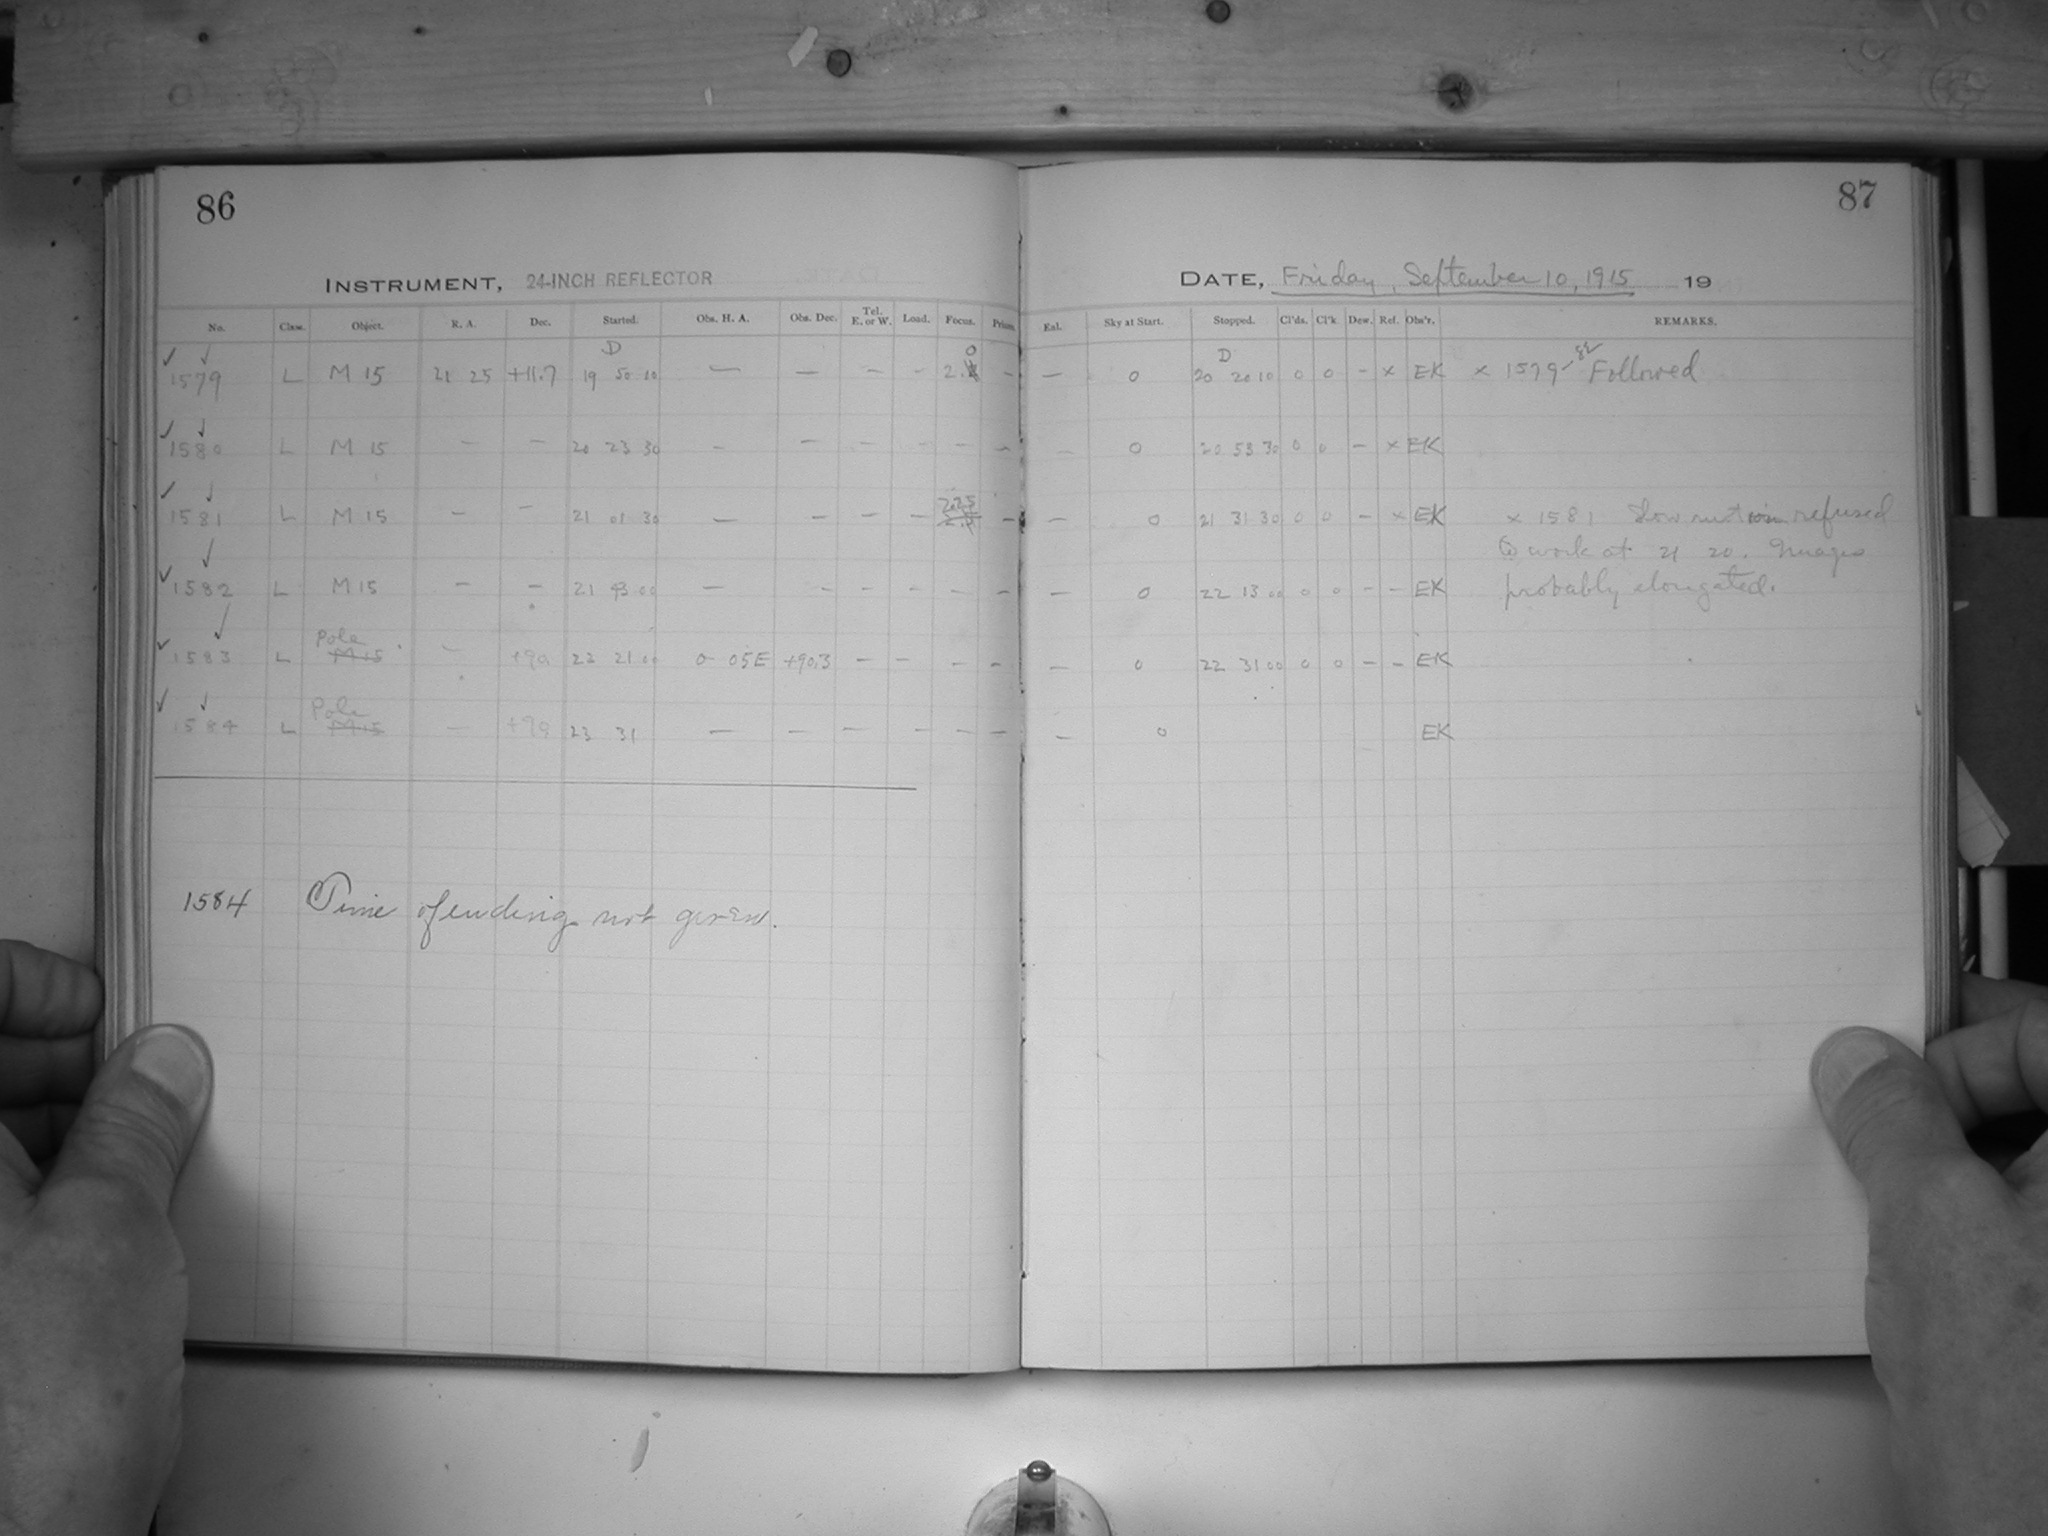 86
87
INSTRUMENT, 24-INCH REFLECTOR
DATE, Friday, September 10, 1915 19
No. Class. Object. R. A. Dec. Started. Obs. H. A. Obs. Dec. Tel. E. or W. Load. Focus. Prism. Eal. Sky at Start. Stopped. Cl'ds. Cl'k Dew. Ref. Obs'r. REMARKS.
D O D
1579 L M 15 21 25 +11.7 19 50 10 — — — - 2. - — 0 20 20 10 0 0 - x EK x 1579-82 Followed
1580 L M 15 — — 20 23 30 - — — - - - - 0 20 53 30 0 0 - x EK
2.25
1581 L M 15 — — 21 01 30 — — — — - — 0 21 31 30 0 0 - x EK x 1581 Slow motion refused
to work at 21 20. Images
1582 L M 15 — — 21 43 00 — - - - - - — 0 22 13 00 0 0 - - EK probably elongated.
Pole
1583 L M 15 — +90 22 21 00 0 05E +90.3 — — - - — 0 22 31 00 0 0 - - EK
Pole
1584 L M 15 — +90 23 31 — — — - - - — 0 EK
1584 Time of ending not given.